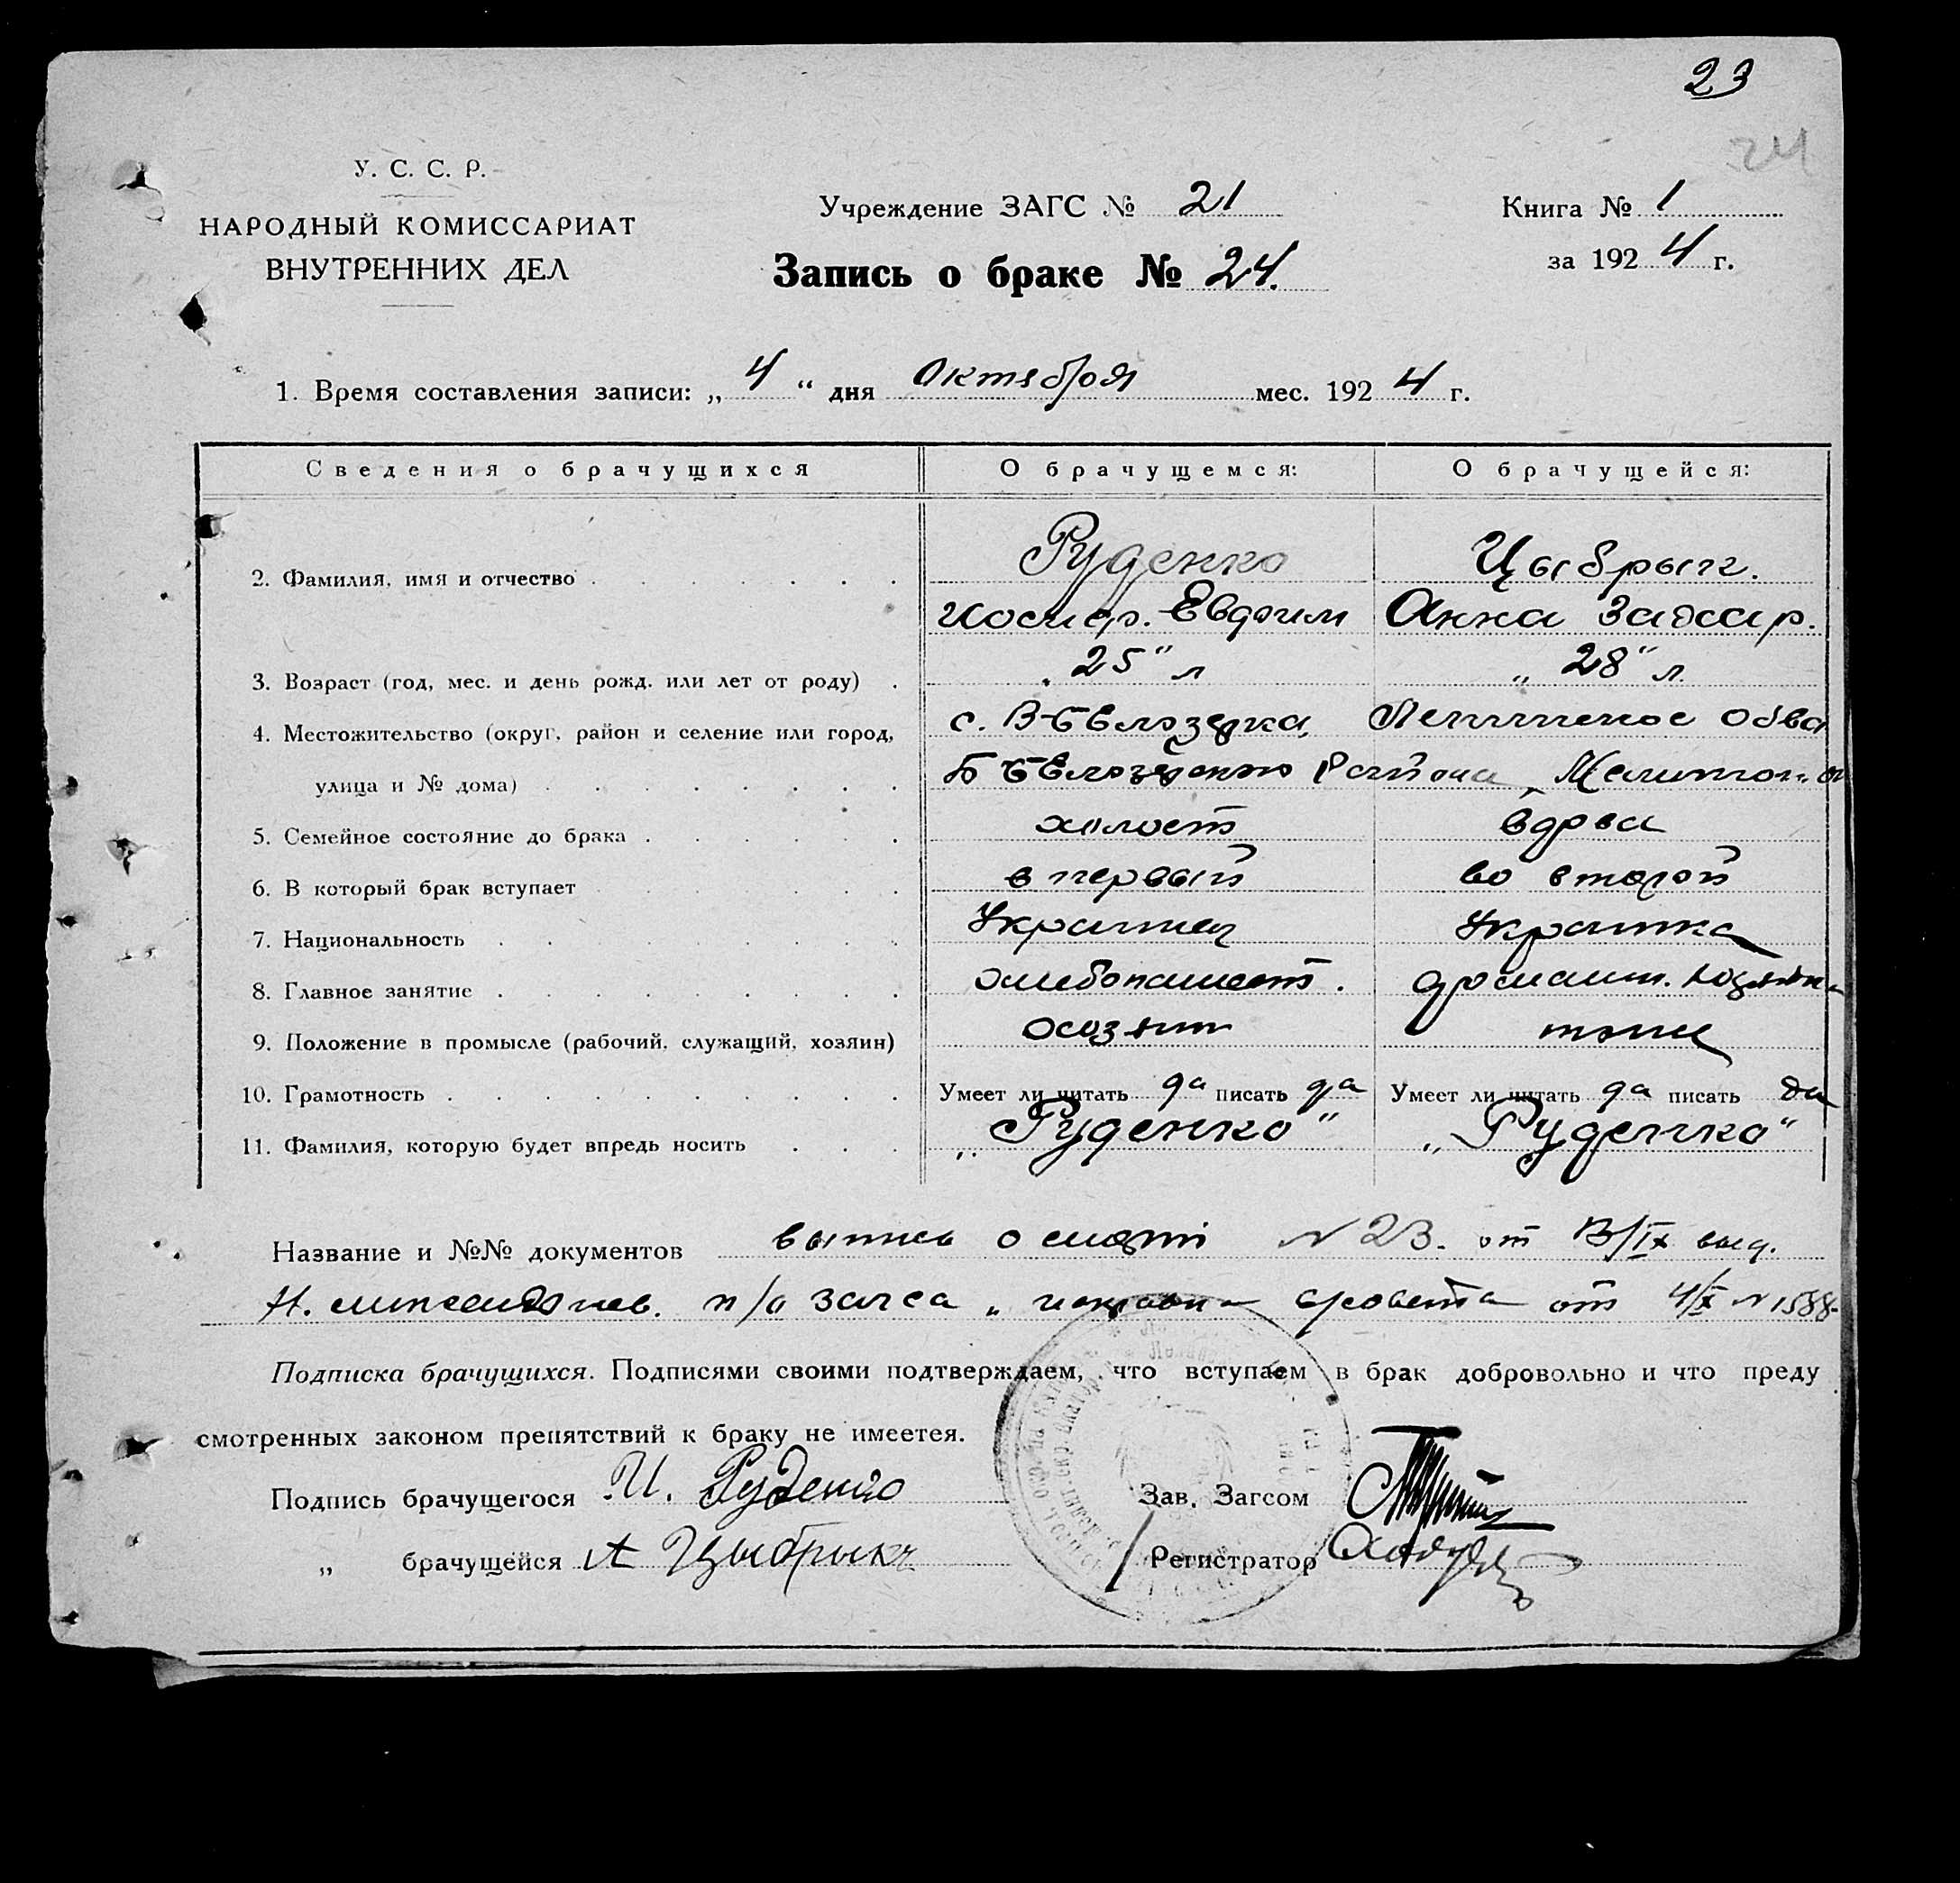 23
24
У. С. С. Р.
НАРОДНЫЙ КОМИССАРИАТ
ВНУТРЕННИХ ДЕЛ
Учреждение ЗАГС № 21
Книга № 1
Запись о браке № 24.
за 1924 г.
1. Время составления записи: „4“ дня Октября мес. 1924 г.
Сведения о брачущихся О брачущемся: О брачущейся:
2. Фамилия, имя и отчество Руденко Цыбрык.
Евдоким Анна Захар.
3. Возраст (год, мес. и день рожд. или лет от роду) „25" л „28" л.
4. Местожительство (округ, район и селение или город, с.
улица и № дома) Района
5. Семейное состояние до брака холост вдова
6. В который брак вступает в первый во второй
7. Национальность Украинец Украинка
8. Главное занятие хлебопашест. домашн.
9. Положение в промысле (рабочий, служащий, хозяин) хозяин
10. Грамотность Умеет ли читать да писать да Умеет ли читать да писать да
11. Фамилия, которую будет впредь носить „Руденко" „Руденко"
Название и №№ документов выпись о смерти № 23. от
п/о загса от 4/X № 1588
Подписка брачущихся. Подписями своими подтверждаем, что вступаем в брак добровольно и что преду
смотренных законом препятствий к браку не имеетея.
Подпись брачущегося И. Руденко Зав. Загсом
„ брачущейся А Цыбрык Регистратор